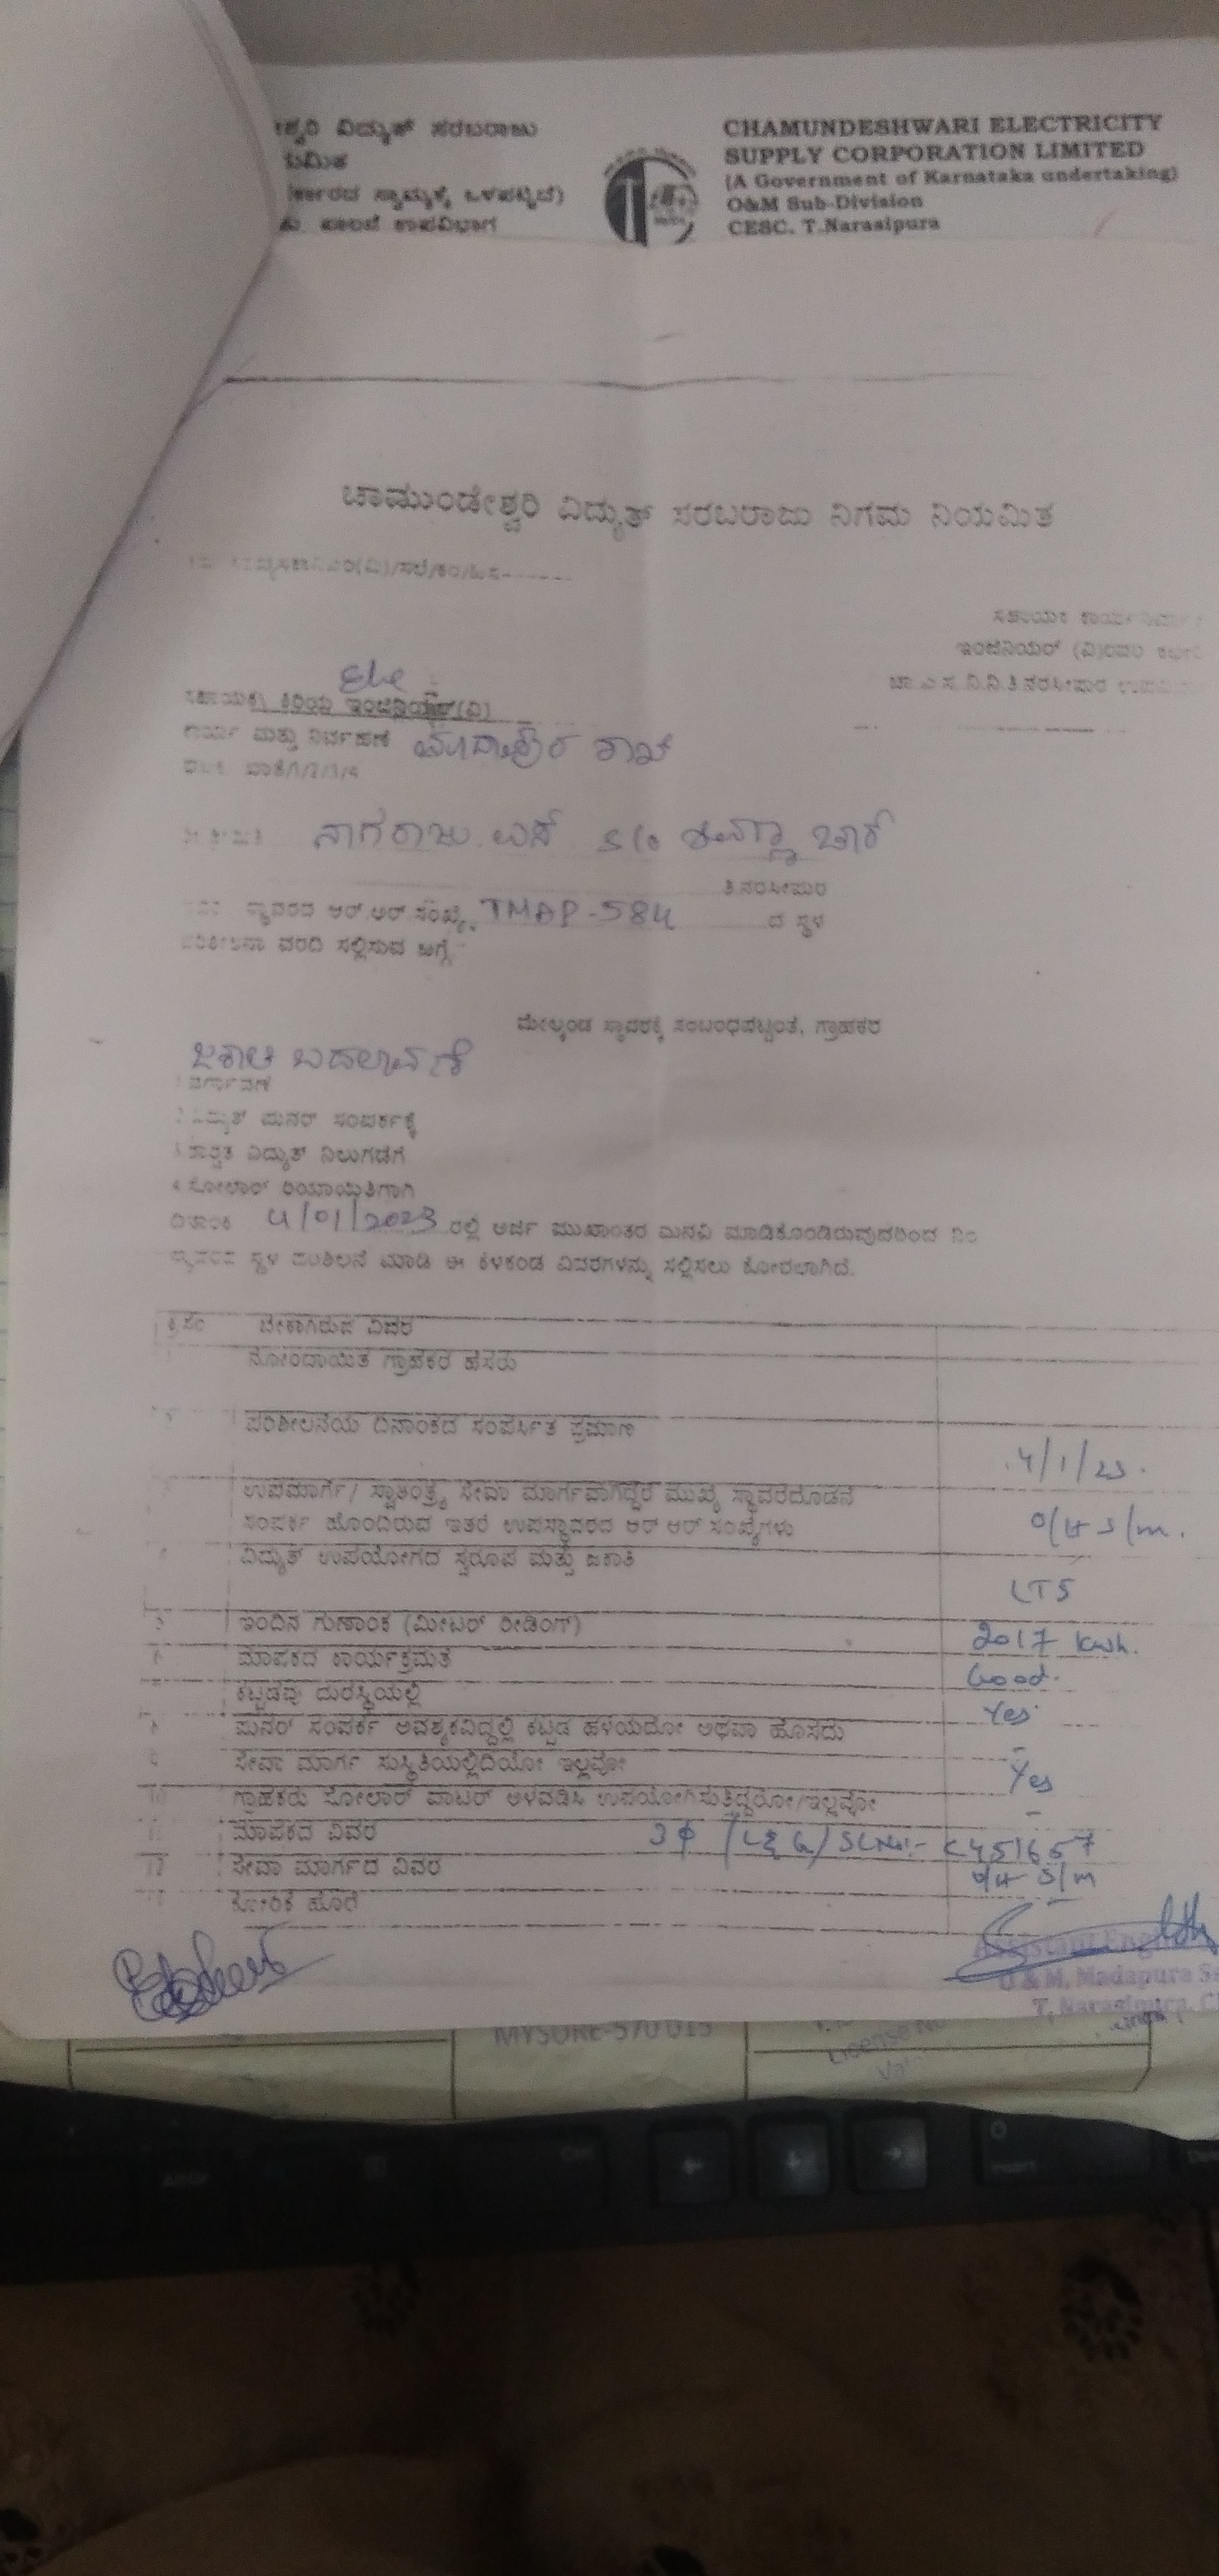 ಶ್ವರಿ ವಿದ್ಯುತ್ ಸರಬರಾಜು
ಯಮಿತ
ಸ್ವಾಮ್ಯಕ್ಕೆ ಒಳಪಟ್ಟಿದೆ)
ಪಾಲನೆ ಉಪವಿಭಾಗ
CHAMUNDESHWARI ELECTRICITY
SUPPLY CORPORATION LIMITED
(A Government of Karnataka undertaking)
O&M Sub-Division
CESC, T.Narasipura
ಚಾಮುಂಡೇಶ್ವರಿ ವಿದ್ಯುತ್ ಸರಬರಾಜು ನಿಗಮ ನಿಯಮಿತ
ಸಹಾಯಕ ಕಾರ್ಯ
ಇಂಜಿನಿಯರ್ (ವಿ)ರವರ ಕಛೇರಿ
ಚಾ.ವಿ.ಸ.ನಿ.ನಿ.ತಿ.ನರಸೀಪುರ
ಸಹಾಯಕ\ ಕಿರಿಯ ಇಂಜಿನಿಯರ್(ವಿ)
ಕಾರ್ಯ ಮತ್ತು ನಿರ್ವಹಣೆ ಮಾದಾಪುರ ಶಾಖೆ
ಶಾಖೆ/1/2/3/4
ನಾಗರಾಜು ಎನ್ S/o
ತಿ.ನರಸೀಪುರ
ಸ್ಥಾವರದ ಆರ್.ಆರ್.ಸಂಖ್ಯೆ TMAP-584 ದ ಸ್ಥಳ
ಪರಿಶೀಲನಾ ವರದಿ ಸಲ್ಲಿಸುವ ಬಗ್ಗೆ
ಮೇಲ್ಕಂಡ ಸ್ಥಾವರಕ್ಕೆ ಸಂಬಂಧಪಟ್ಟಂತೆ, ಗ್ರಾಹಕರ
ಜಕಾತಿ ಬದಲಾವಣೆ
ವರ್ಗಾವಣೆ
ವಿದ್ಯುತ್ ಮನರ್ ಸಂಪರ್ಕಕ್ಕೆ
ಶಾಶ್ವತ ವಿದ್ಯುತ್ ನಿಲುಗಡೆಗೆ
4.ಸೋಲಾರ್ ರಿಯಾಯಿತಿಗಾಗಿ
ದಿನಾಂಕ 4/01/2023 ರಲ್ಲಿ ಅರ್ಜಿ ಮುಖಾಂತರ ಮನವಿ ಮಾಡಿಕೊಂಡಿರುವುದರಿಂದ
ಸ್ಥಳ ಪರಿಶೀಲನೆ ಮಾಡಿ ಈ ಕೆಳಕಂಡ ವಿವರಗಳನ್ನು ಸಲ್ಲಿಸಲು ಕೋರಲಾಗಿದೆ.
ಕ್ರ.ಸಂ ಬೇಕಾಗಿರುವ ವಿವರ
ನೋಂದಾಯಿತ ಗ್ರಾಹಕರ ಹೆಸರು
ಪರಿಶೀಲನೆಯ ದಿನಾಂಕದ ಸಂಪರ್ಸಿತ ಪ್ರಮಾಣ 4/1/23.
ಉಪಮಾರ್ಗ/ ಸ್ವಾತಂತ್ರ್ಯ ಸೇವಾ ಮಾರ್ಗವಾಗಿದ್ದರೆ ಮುಖ್ಯ ಸ್ಥಾವರದೊಡನೆ
ಸಂಪರ್ಕ ಹೊಂದಿರುವ ಇತರೆ ಉಪಸ್ಥಾವರದ ಆರ್ ಆರ್ ಸಂಖ್ಯೆಗಳು O/H S/m.
ವಿದ್ಯುತ್ ಉಪಯೋಗದ ಸ್ವರೂಪ ಮತ್ತು ಜಕಾತಿ LT5
5 ಇಂದಿನ ಗುಣಾಂಕ (ಮೀಟರ್ ರೀಡಿಂಗ್) 2017 kwh.
6 ಮಾಪಕದ ಕಾರ್ಯಕ್ಷಮತೆ Good.
ಕಟ್ಟಡವು ದುರಸ್ಥಿಯಲ್ಲಿ Yes
8 ಮನರ್ ಸಂಪರ್ಕ ಅವಶ್ಯಕವಿದ್ದಲ್ಲಿ ಕಟ್ಟಡ ಹಳೆಯದೋ ಅಥವಾ ಹೊಸದು -
9 ಸೇವಾ ಮಾರ್ಗ ಸುಸ್ಥಿತಿಯಲ್ಲಿದಿಯೋ ಇಲ್ಲವೋ Yes
10 ಗ್ರಾಹಕರು ಸೋಲಾರ್ ವಾಟರ್ ಅಳವಡಿಸಿ ಉಪಯೋಗಿಸುತ್ತಿದ್ದರೋ/ಇಲ್ಲವೋ -
11 ಮಾಪಕದ ವಿವರ 3ϕ /L&G/ SLNo:- C451657
12 ಸೇವಾ ಮಾರ್ಗದ ವಿವರ O/H S/m
ಕೋರಿಕೆ ಹೊರೆ
Assistant Engi
O & M, Madapura Se
T. Narasipura, C
MYSORE-570 015
License No
Val
Insert